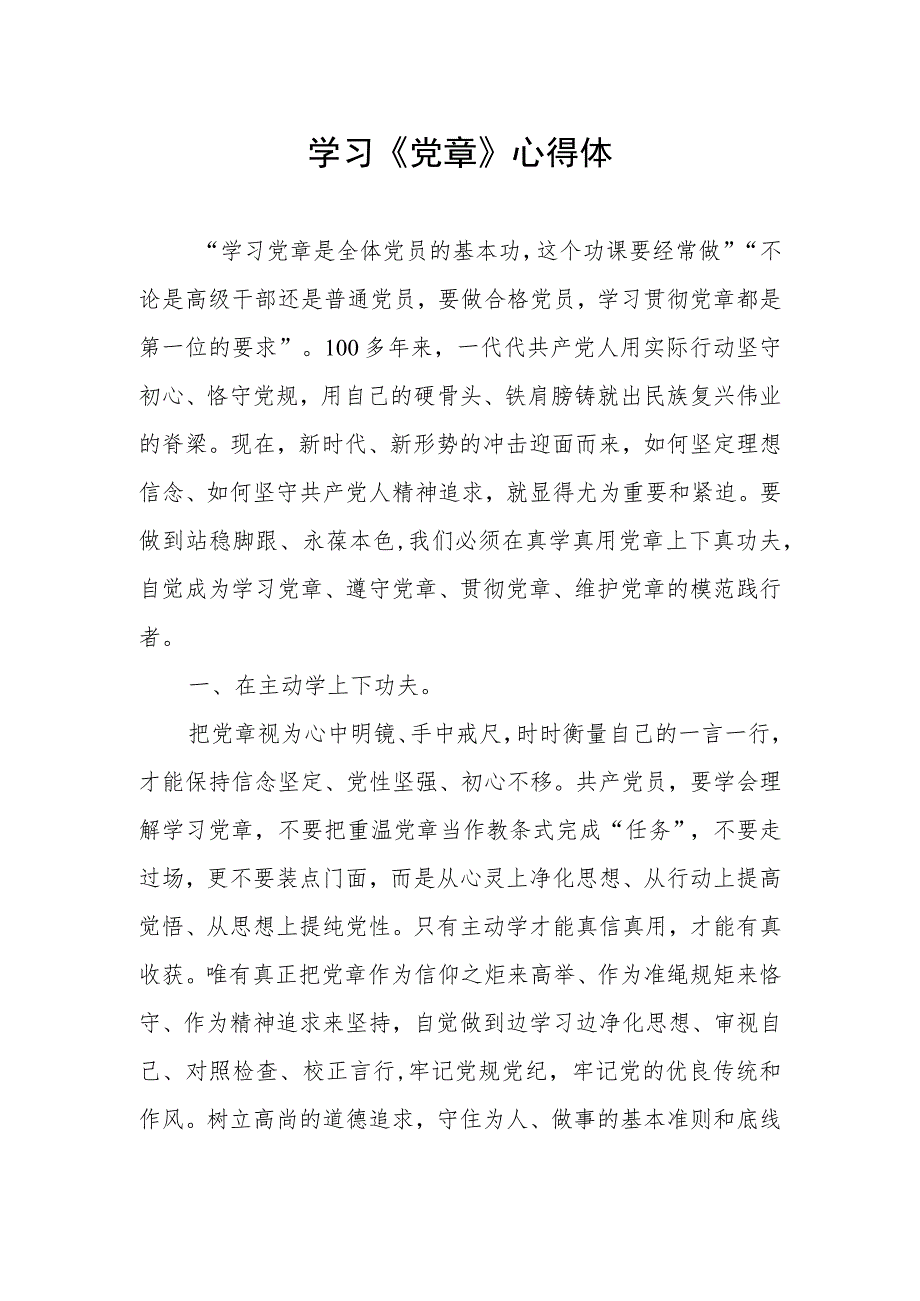 学习《党章》心得体
“学习党章是全体党员的基本功,这个功课要经常做”“不
论是高级干部还是普通党员，要做合格党员，学习贯彻党章都是
第一位的要求”。100多年来，一代代共产党人用实际行动坚守
初心、恪守党规，用自己的硬骨头、铁肩膀铸就出民族复兴伟业
的脊梁。现在，新时代、新形势的冲击迎面而来，如何坚定理想
信念、如何坚守共产党人精神追求，就显得尤为重要和紧迫。要
做到站稳脚跟、永葆本色,我们必须在真学真用党章上下真功夫,
自觉成为学习党章、遵守党章、贯彻党章、维护党章的模范践行
者。
一、在主动学上下功夫。
把党章视为心中明镜、手中戒尺,时时衡量自己的一言一行，
才能保持信念坚定、党性坚强、初心不移。共产党员，要学会理
解学习党章，不要把重温党章当作教条式完成“任务”，不要走
过场，更不要装点门面，而是从心灵上净化思想、从行动上提高
觉悟、从思想上提纯党性。只有主动学才能真信真用，才能有真
收获。唯有真正把党章作为信仰之炬来高举、作为准绳规矩来恪
守、作为精神追求来坚持，自觉做到边学习边净化思想、审视自
己、对照检查、校正言行,牢记党规党纪，牢记党的优良传统和
作风。树立高尚的道德追求，守住为人、做事的基本准则和底线